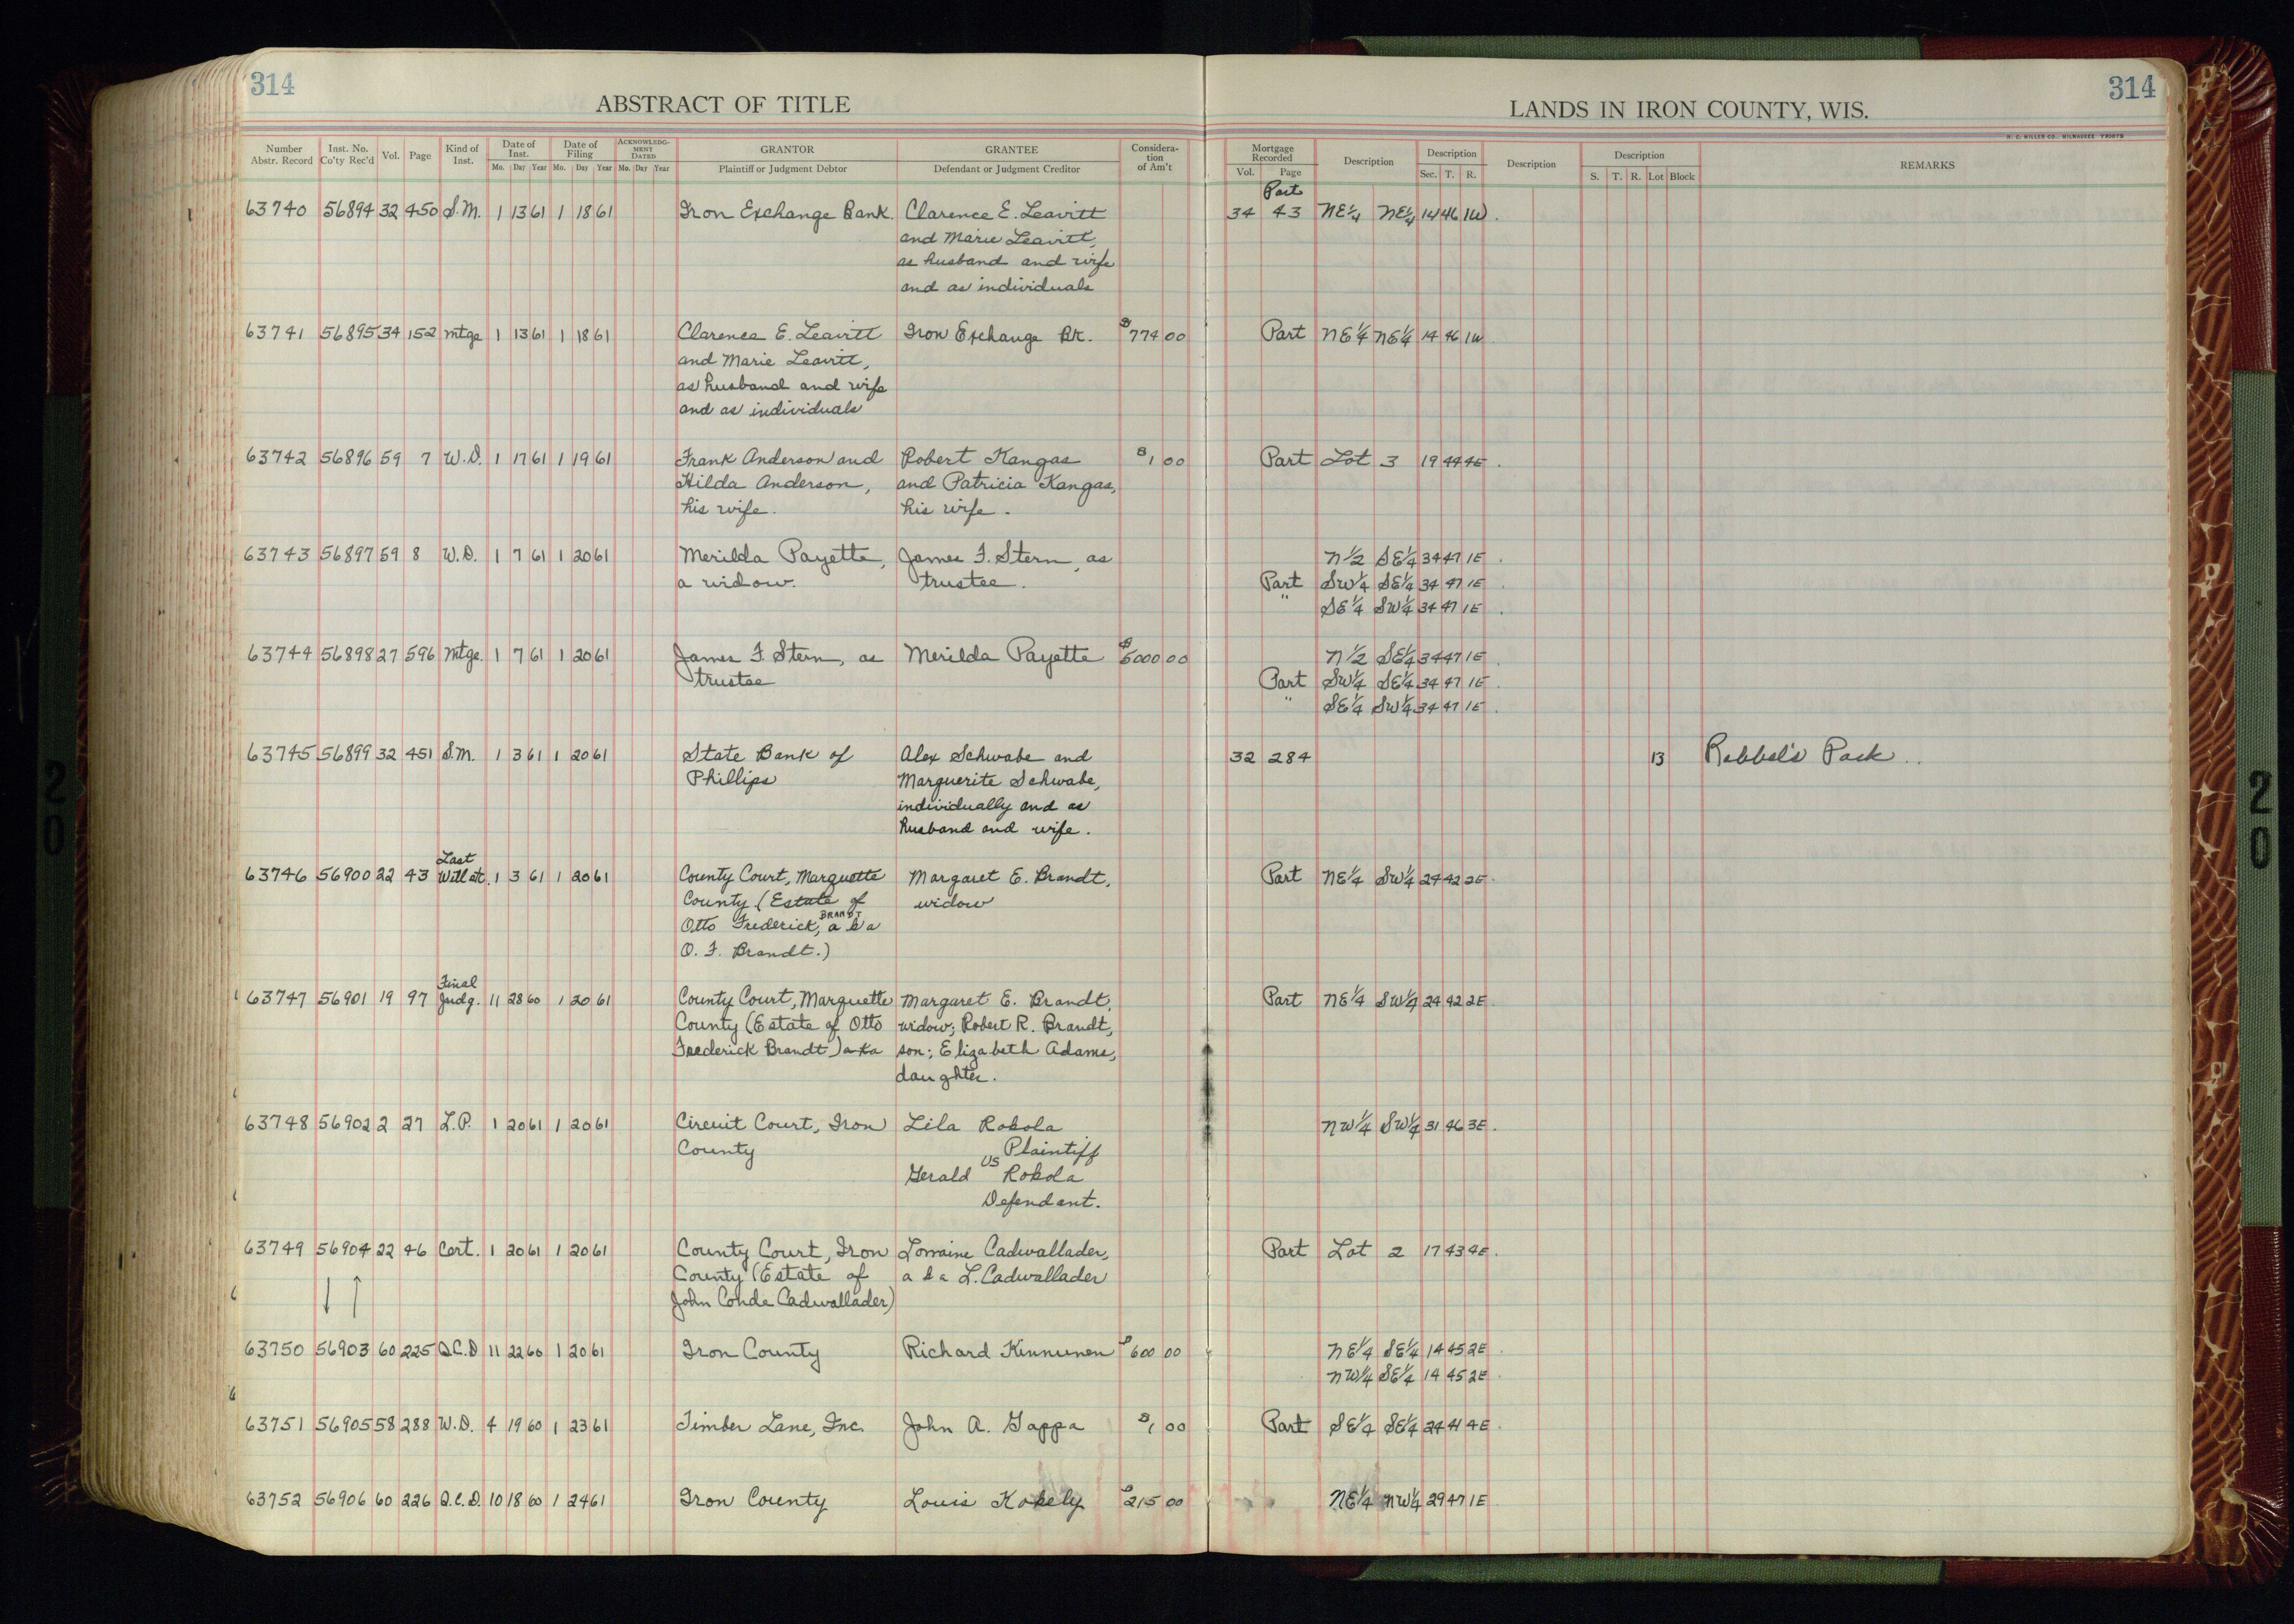 314
314
ABSTRACT OF TITLE
LANDS IN IRON COUNTY, WIS.
H. C. MILLER CO., MILWAUKEE
Number Abstr. Record Inst. No. Co'ty Rec'd Vol. Page Kind of Inst. Date of Inst. Mo. Day Year Date of Filing Mo. Day Year ACKNOWLEDGMENT DATED Mo. Day Year GRANTOR Plaintiff or Judgment Debtor GRANTEE Defendant or Judgment Creditor Consideration of Am't Mortgage Recorded Vol. Page Description Description Sec. T. R. Description Description S. T. R. Lot Block REMARKS
Part
63740 56894 32 450 S.M. 1 13 61 1 18 61 Iron Exchange Bank. Clarence E. Leavitt 34 43 NE1/4 NE1/4 14 46 1W.
and Marie Leavitt,
as husband and wife
and as individuals
63741 56895 34 152 Mtge 1 13 61 1 18 61 Clarence E. Leavitt Iron Exchange Bk. $774 00 Part NE1/4 NE1/4 14 46 1W.
and Marie Leavitt,
as husband and wife
and as individuals
63742 56896 59 7 W.D. 1 17 61 1 19 61 Frank Anderson and Robert Kangas $1 00 Part Lot 3 19 44 4E.
Hilda Anderson, and Patricia Kangas,
his wife. his wife.
63743 56897 59 8 W.D. 1 7 61 1 20 61 Merilda Payette, James F. Stern, as N1/2 SE1/4 34 47 1E.
a widow. trustee. Part SW1/4 SE1/4 34 47 1E.
" SE1/4 SW1/4 34 47 1E.
63744 56898 27 596 Mtge. 1 7 61 1 20 61 James F. Stern, as Merilda Payette $5000 00 N1/2 SE1/4 34 47 1E.
trustee Part SW1/4 SE1/4 34 47 1E.
" SE1/4 SW1/4 34 47 1E.
63745 56899 32 451 S.M. 1 3 61 1 20 61 State Bank of Alex Schwabe and 32 284 13
Phillips Marguerite Schwabe,
individually and as
husband and wife.
Last
63746 56900 22 43 Will etc. 1 3 61 1 20 61 County Court, Marquette Margaret E. Brandt, Part NE1/4 SW1/4 24 42 2E.
County (Estate of widow
BRANDT
Otto Frederick, a k a
O. F. Brandt.)
Final
63747 56901 19 97 Judg. 11 28 60 1 20 61 County Court, Marquette Margaret E. Brandt, Part NE1/4 SW1/4 24 42 2E.
County (Estate of Otto widow; Robert R. Brandt,
Frederick Brandt) aka son; Elizabeth Adams,
daughter.
63748 56902 2 27 L.P. 1 20 61 1 20 61 Circuit Court, Iron Lila Rokola NW1/4 SW1/4 31 46 3E.
County Plaintiff
vs
Gerald Rokola
Defendant.
63749 56904 22 46 Cert. 1 20 61 1 20 61 County Court, Iron Lorraine Cadwallader, Part Lot 2 17 43 4E.
County (Estate of a k a L. Cadwallader
John Conde Cadwallader)
63750 56903 60 225 Q.C.D 11 22 60 1 20 61 Iron County Richard Kinnunen $600 00 NE1/4 SE1/4 14 45 2E.
NW1/4 SE1/4 14 45 2E.
63751 56905 58 288 W.D. 4 19 60 1 23 61 Timber Lane, Inc. John A. Gappa $1 00 Part SE1/4 SE1/4 24 41 4E.
63752 56906 60 226 Q.C.D. 10 18 60 1 24 61 Iron County Louis $215 00 NE1/4 NW1/4 29 47 1E
20
20